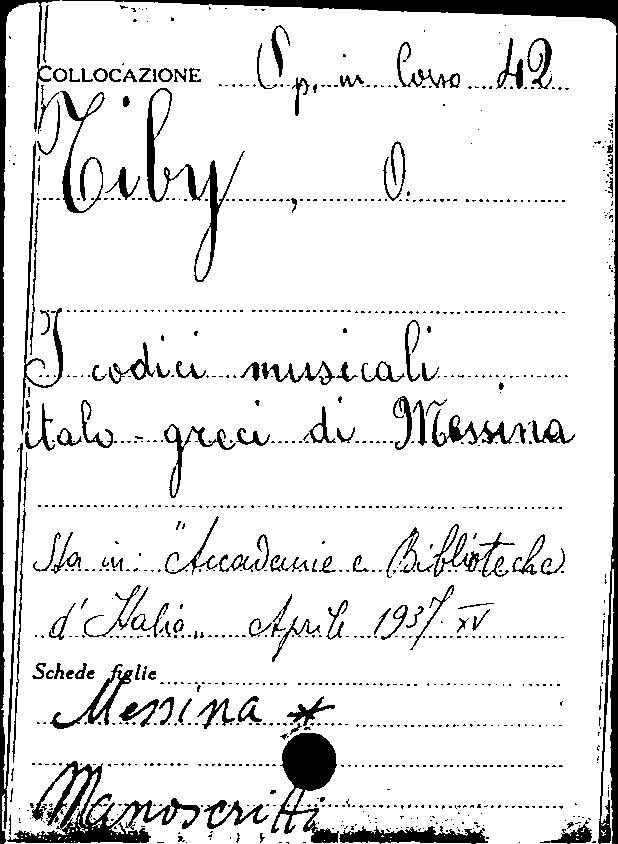 COLLOCAZIONE Op. in Corso 42
Tiby, O.
I codici musicali
italo-greci di Messina
Sta in: "Accademie e Biblioteche
d'Italia„ Aprile 1937-XV
Schede figlie
Messina *
Manoscritti